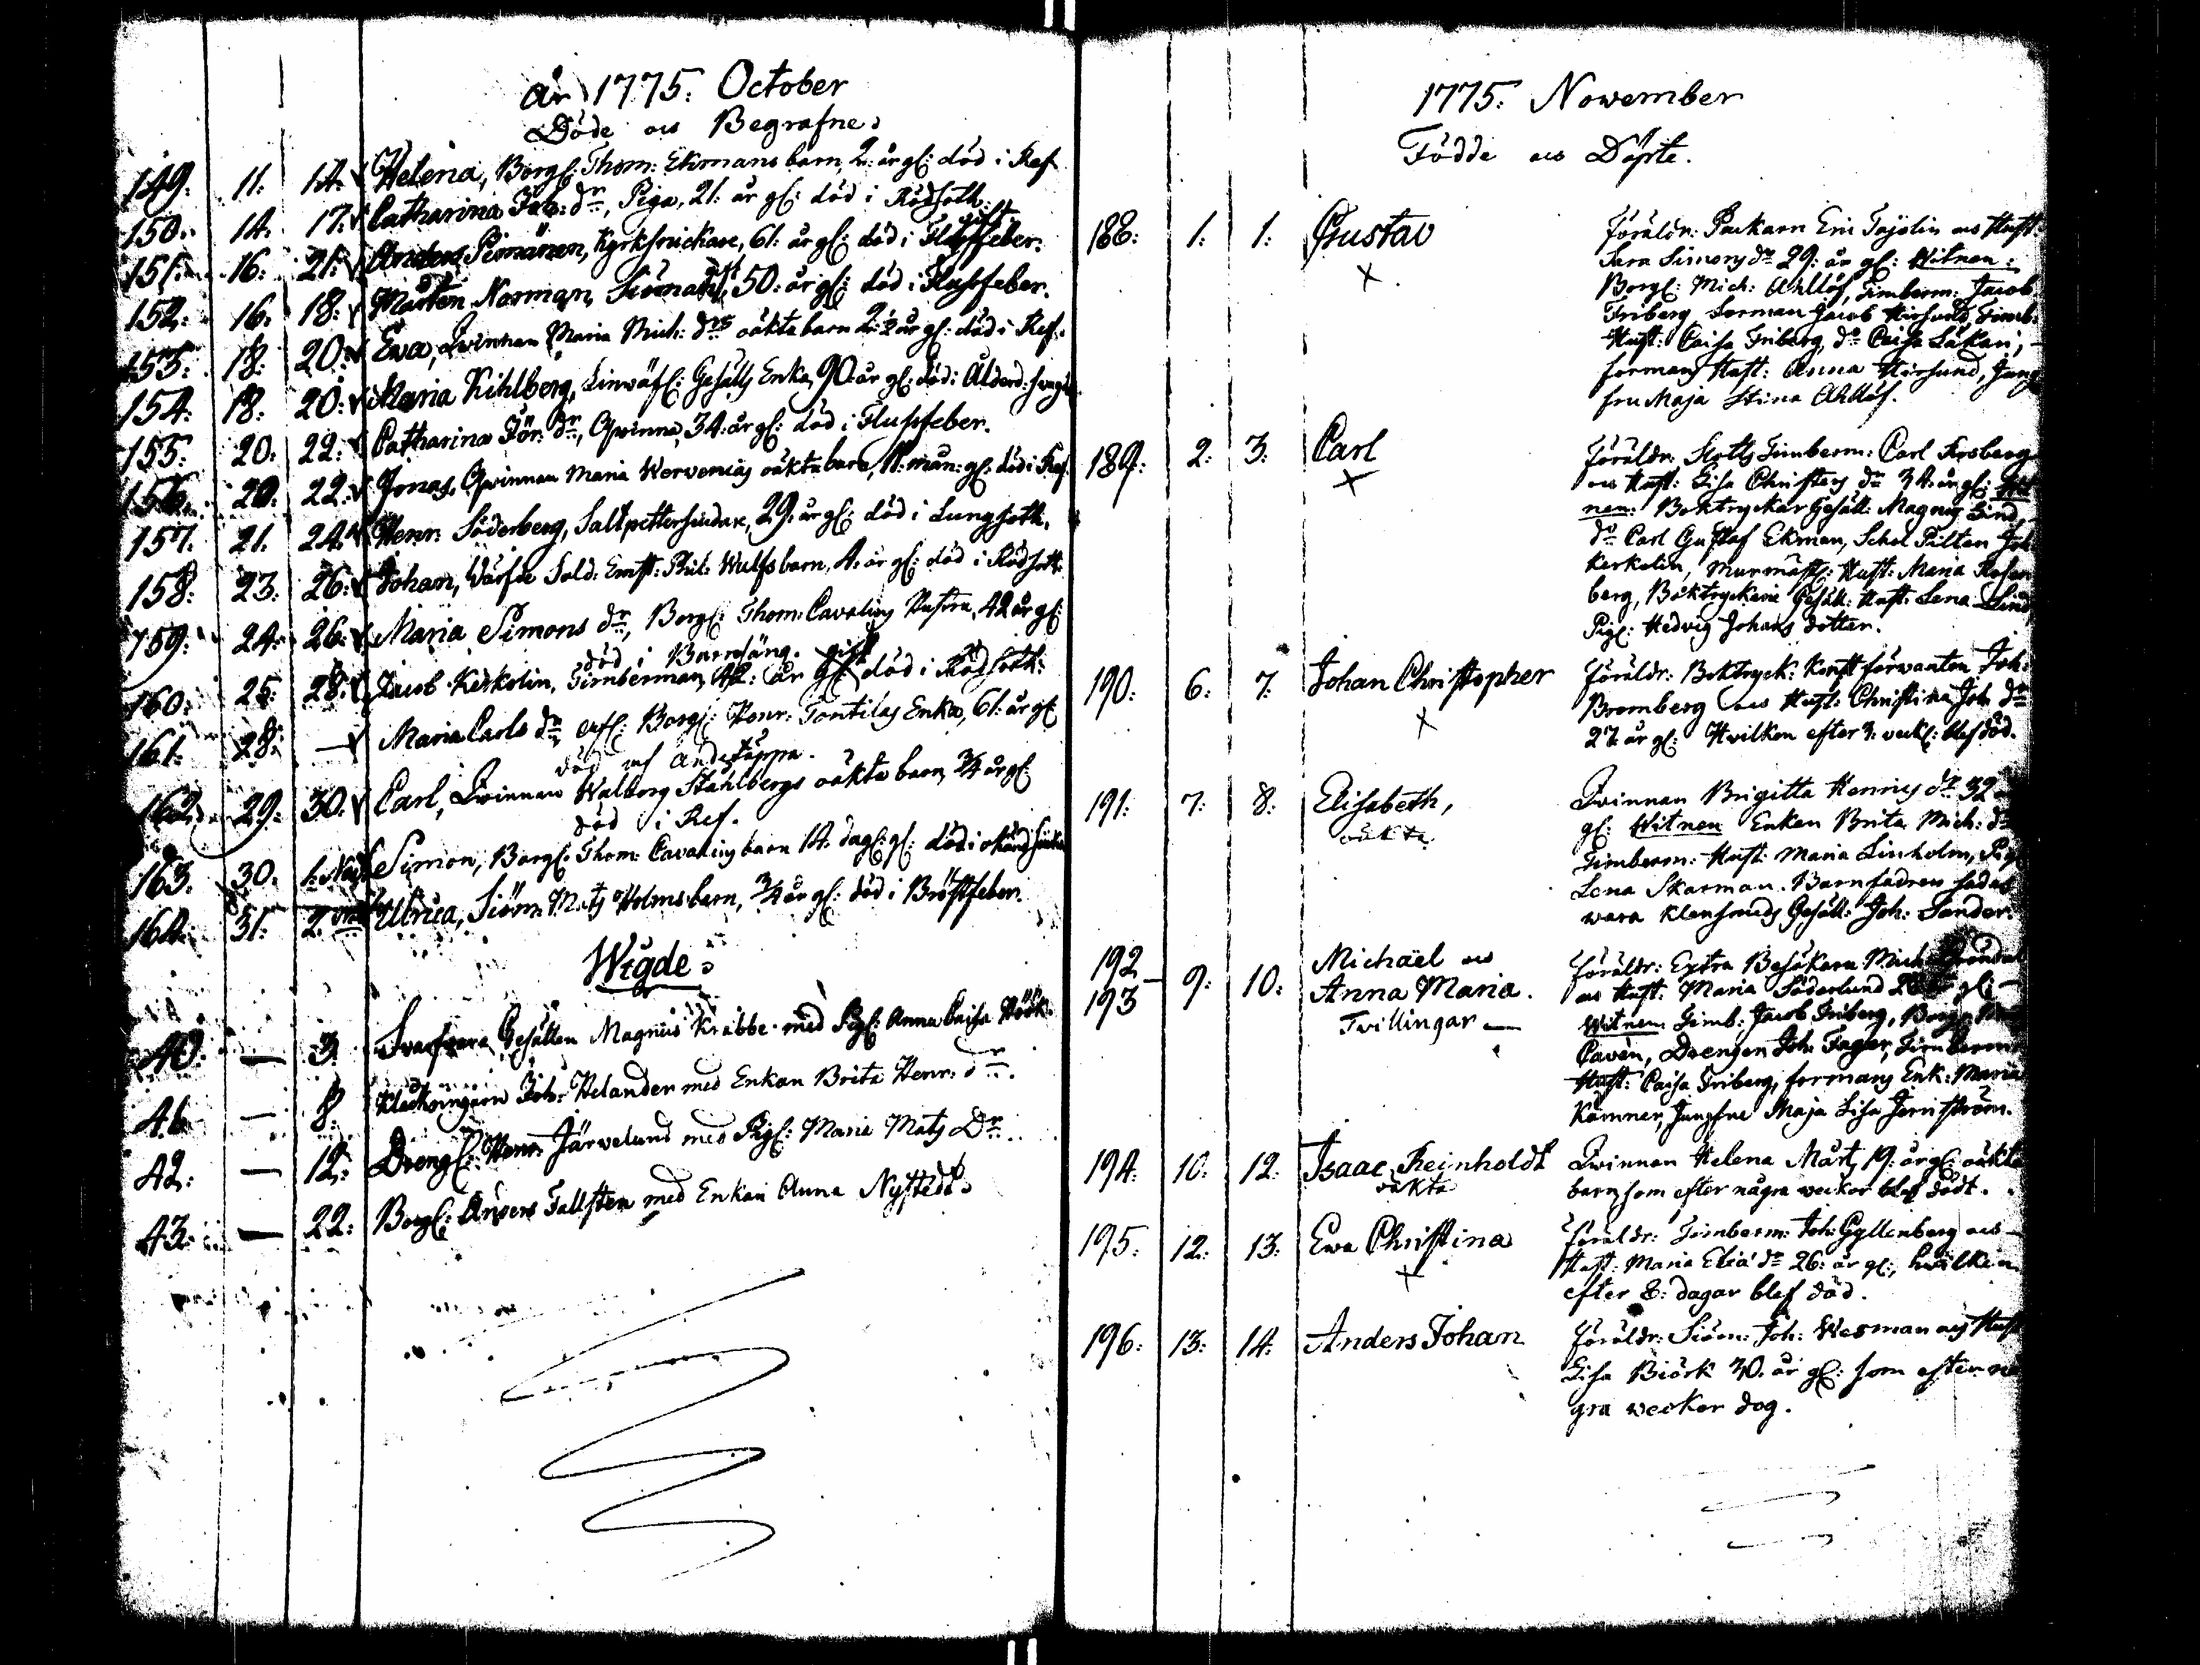 År 1775. October
Döde och Begrafne.
149. 11. 14. Helena, Borgl: Thom: Ekmans barn, 2. år gl: död i Ref
150. 14. 17. Catharina Jac: dr, Piga, 21. år gl: död i Rödsoth.
151. 16. 21. Anders Pemänen, Kyrksnickare, gift, 61. år gl: död i Flussfeber.
152. 16. 18. Mårten Norman, Siöman, gift, 50. år gl: död i Flussfeber.
153. 18. 20. Ewa, Qwinnan Maria Mich: drs oäkta barn 2 1/2 år gl: död i Ref.
154. 18. 20. Maria Kihlberg, Linwäfl: Gesälls Enka, 90. år gl: död: Ålderd:
155. 20. 22. Catharina Jör: dr, Qwinna, 34. år gl: död i Flussfeber.
156. 20. 22. Jonas, Qwinnan Maria oäkta barn, 11. mån: gl: död i Ref.
157. 21. 24. Henr: Söderberg, Saltpettersiudare, 29. år gl: död i Lungsoth.
158. 23. 26. Johan, Sold: Wulfs barn, 4. år gl: död i Rödsoth.
159. 24. 26. Maria Simons dr, Borgl: Thom: Cavalins Hustru, 42 år gl:
död i Barnsäng.
160. 25. 28. Jacob Kerkolin, Timberman, gift, 42: år gl: död i Rödsoth.
161. 28. — Maria Carls dr, Borgl: Henr: Tontilas Enka, 61. år gl:
död af andetäppa.
162. 29. 30. Carl, Qwinnan Walborg Ståhlbergs oäkta barn, 3/4 år gl:
död i Ref.
163. 30. 1. Nov. Simon, Borgl: Thom: Cavalins barn 14. dag: gl: död i okänd
164. 31. 2. Ulrica, Siöm: Mats Holms barn, 3/4 år gl: död i Bröstfeber.
Wigde.
40. — 3. Gesällen Magnus Krabbe med Pigl: Anna Caisa Höök.
41. — 8. Joh: Helander med Enkan Brita Henr: dr.
42. — 12. Drengl: Henr: Järwelund med Pigl: Maria Mats Dr.
43. — 22. Borgl: Anders Tallsten med Enkan Anna Nystedt.
1775. November
Födde och Döpte.
188. 1. 1. Gustav
x
Föräldr: Packarn Eric Tajolin och Hust:
Sara Simons dr 29: år gl: Witnen:
Borgl: Mich: Ahllöf, Timberm: Jacob
Friberg, Forman Jacob Hirsund, Timb:
Hust: Caisa Friberg, do Caisa Läkan,
formans Hust: Anna Hirsund, Jung
fru Maja Stina Ahllöf.
189. 2. 3. Carl
x
Föräldr: Slotts Timberm: Carl Forsberg
och Hust: Lisa Christers dr 34. år gl: Wit
nen: Boktryckar Gesäll: Magnus Lind,
do Carl Gustaf Ekman, Joh
Kerkolin, Murmäst: Hust: Maria Rosen
berg, Boktryckare Gesäll: Hust: Lena Lind
Pigl: Hedvig Johans dotter.
190. 6. 7. Johan Christopher
x
Föräldr: Boktryck: Konstförwanten Joh:
Bromberg och Hust: Christina Joh: dr
27. år gl: Hvilken efter 3. veck: blef död.
191. 7. 8. Elisabeth,
oäkta
Qvinnan Brigitta Henrics dr 32
gl: Witnen Enkan Brita Mich: dr
Timberm: Hust: Maria Linholm, Pig
Lena Skarman. Barnfadren sades
wara Klensmeds Gesäll: Joh: Sander.
192 193 9. 10. Michaël och
Anna Maria.
Twillingar —
Föräldr: Extra Besökare Mich:
och Hust: Maria Söderlund gl: —
Witnen Timb: Jacob Friberg, Borg
Cavén, Drengen Joh: Fager, Timberm:
Hust: Caisa Friberg, formans Enk: Maria
Kämner, Jungfru Maja Lisa Jernström.
194. 10. 12. Isaac Reinholdt
oäkta
Qvinnan Helena Märt, 19. år gl: oäkta
barn som efter några weckor blef dödt.
195. 12. 13. Ewa Christina
x
Föräldr: Timberm: Joh: Gyllenberg och
Hust: Maria Elia dr 26: år gl:, hwilken
efter 8: dagar blef död.
196. 13. 14. Anders Johan
Föräldr: Siöm: Joh: Wesman och Hust
Lisa Biörk 30. år gl: som efter nå
gra weckor dog.